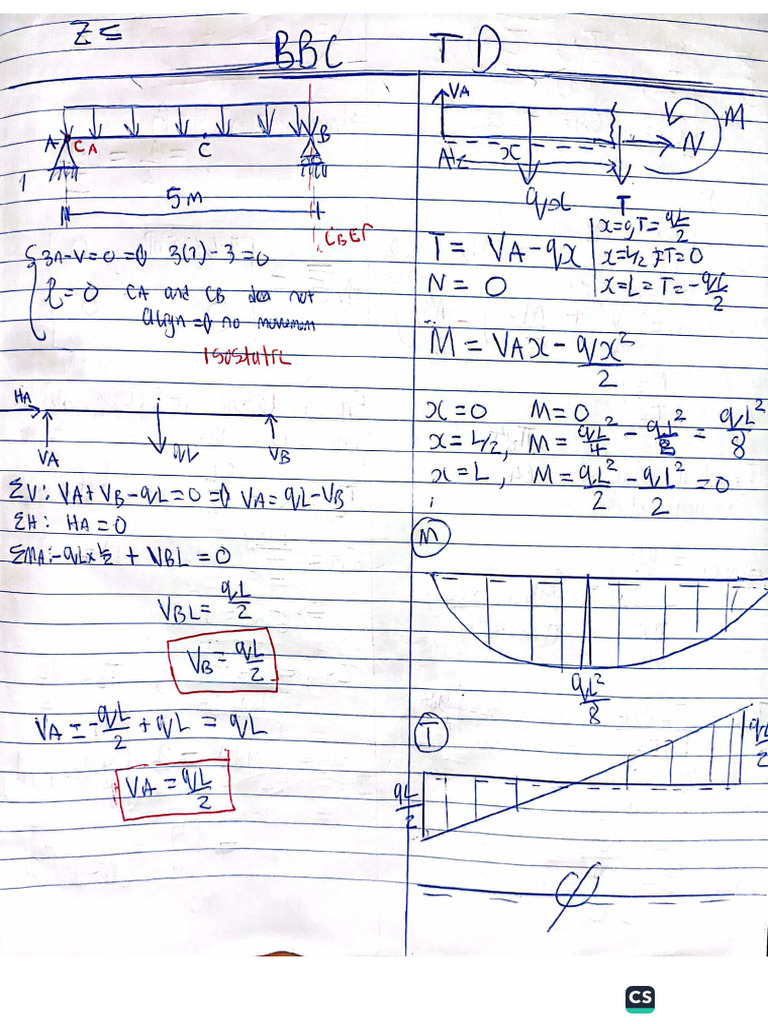 BBC TD
A CA C B
5 m
CB ET
3A-V=0 => 3(1)-3=0
l=0 CA and CB does not
align => no movement
Isostatic
HA
VA qL VB
ΣV: VA+VB-qL=0 => VA=qL-VB
ΣH: HA=0
ΣMA: -qL×L/2 + VBL=0
VBL= qL/2
VB = qL/2
VA = -qL/2 + qL = qL
VA = qL/2
VA
M
N
x
qx T
T = VA-qx
x=0, T= qL/2
x=L/2 T=0
x=L = T= -qL/2
N = 0
M = VAx - qx²/2
x=0 M=0
x=L/2, M= qL²/4 - qL²/8 = qL²/8
x=L, M= qL²/2 - qL²/2 =0
M
qL²/8
T
qL/2
qL/2
CS